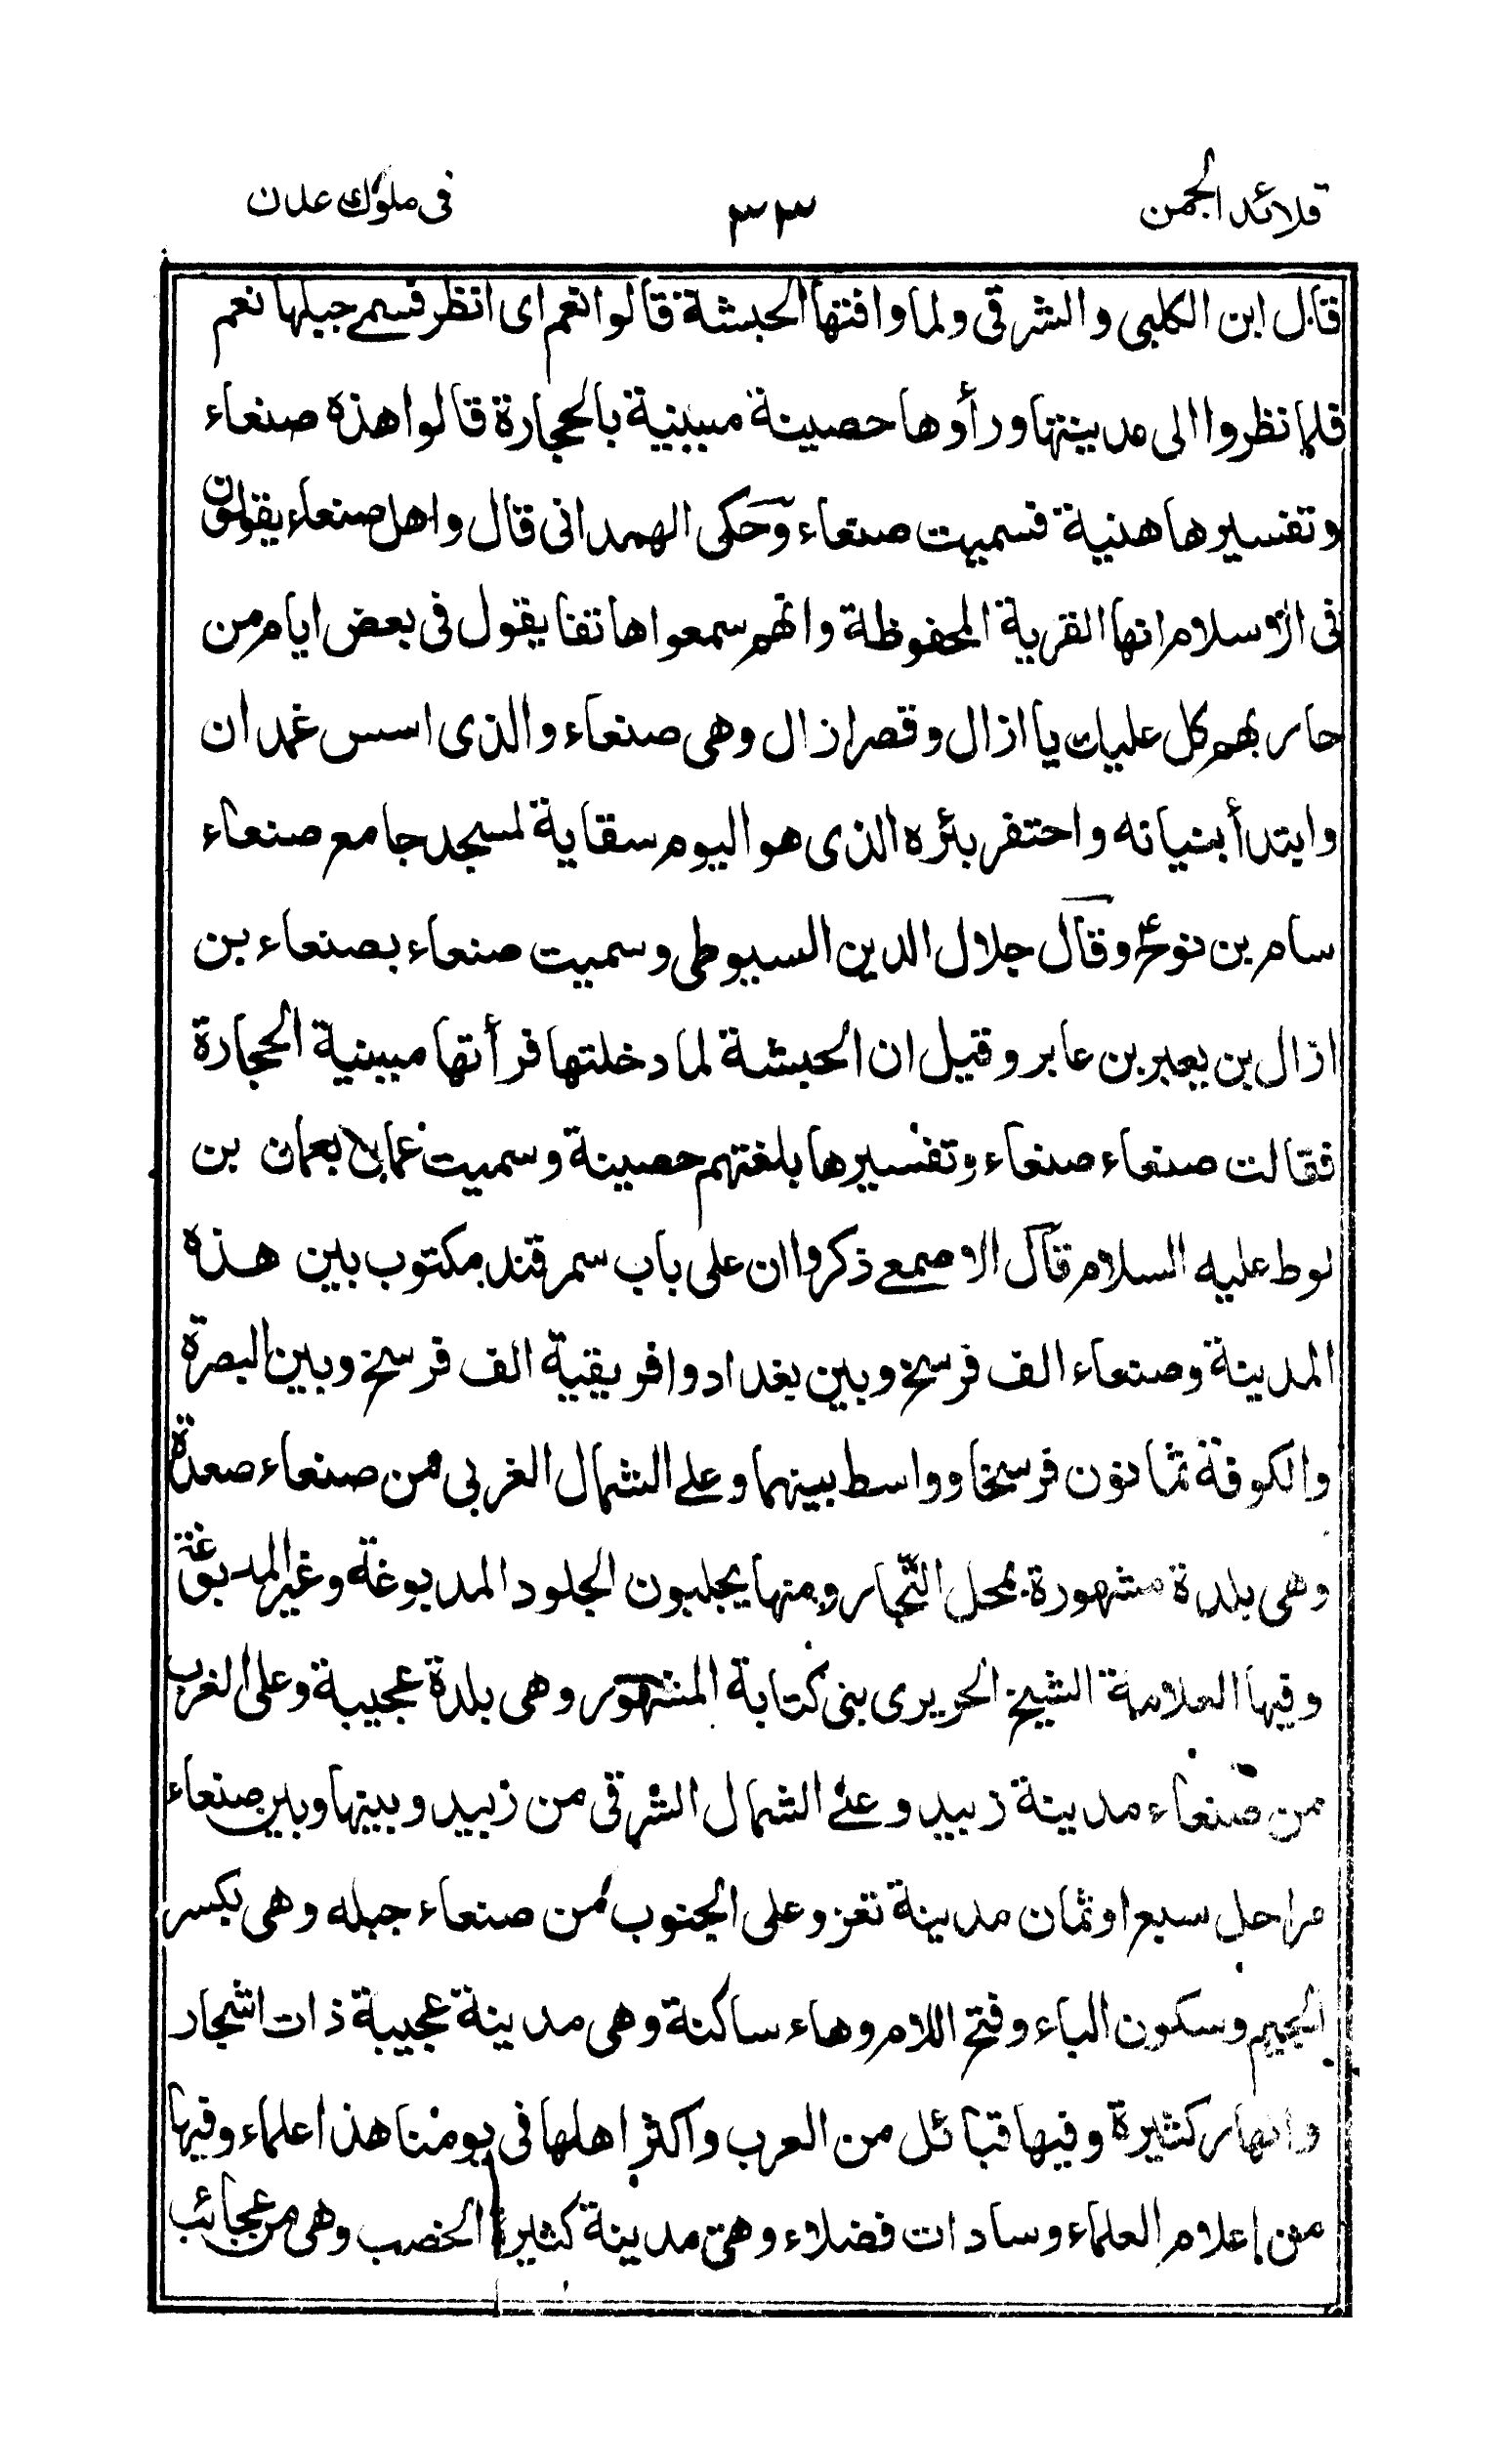 قلائد الجمن ٣٣ في ملوك عدن
قال ابن الكلبي والشرقي ولما وافتها الحبشة قالوا نعم اى انظر فسمے جبلها نعم
فلما نظروا الى مدينتها ورأوها حصينة مبنية بالحجارة قالوا هذه صنعاء
وتفسيرها هنية فسميت صنعاء وحكى الهمدانى قال واهل صنعاء يقولون
فى الاسلام انها القرية المحفوظة وانهم سمعوا هاتفا يقول فى بعض ايام من
حاربهم كل عليك يا ازال وقصر ازال وهى صنعاء والذى اسس غمدان
وابتدأ بنيانه واحتفر بئره الذى هو اليوم سقاية لمسجد جامع صنعاء
سام بن نوحؑ وقال جلال الدين السيوطى وسميت صنعاء بصنعاء بن
ازال بن يعبر بن عابر وقيل ان الحبشة لما دخلتها فرأتها مبنية الحجارة
فقالت صنعاء صنعاء وتفسيرها بلغتهم حصينة وسميت عمان بعمان بن
لوط عليه السلام قال الاصمعے ذكروا ان على باب سمرقند مكتوب بين هذه
المدينة وصنعاء الف فرسخ وبين بغداد وافريقية الف فرسخ وبين البصرة
والكوفة ثمانون فرسخا وواسط بينهما وعلے الشمال الغربي من صنعاء صعدة
وهى بلدة مشهورة بمحل التجار ومنها يجلبون الجلود المدبوغة وغير المدبوغة
وفيها العلامة الشيخ الحريرى بنى كتابة المشهور وهى بلدة عجيبة وعلى الغرب
من صنعاء مدينة زبيد وعلے الشمال الشرقى من زبيد وبينها وبين صنعاء
مراحل سبع او ثمان مدينة تعز وعلى الجنوب من صنعاء جبله وهى بكسر
الجيم وسكون الباء وفتح اللام وهاء ساكنة وهى مدينة عجيبة ذات اشجار
وانهار كثيرة وفيها قبائل من العرب واكثر اهلها فى يومنا هذا علماء وفيها
من اعلام العلماء وسادات فضلاء وهى مدينة كثيرة الخصب وهى من عجائب